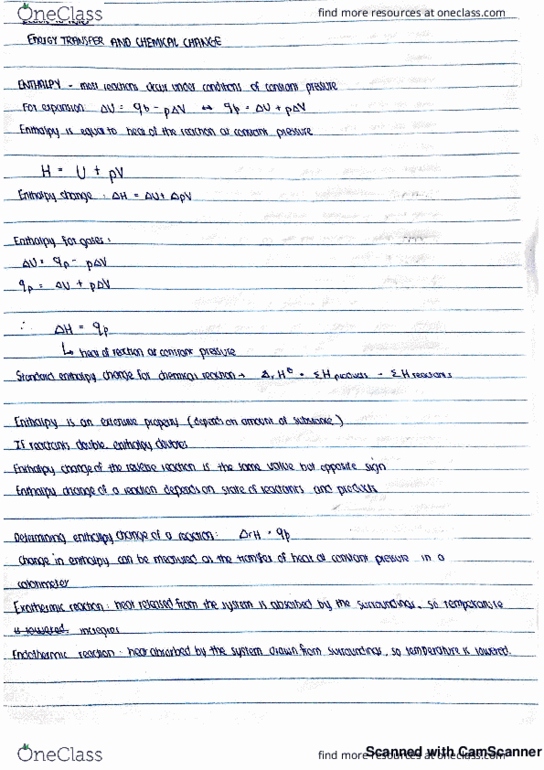 OneClass
find more resources at oneclass.com
ENERGY TRANSFER AND CHEMICAL CHANGE
ENTHALPY - most reactions occur under conditions of constant pressure
For expansion: ΔU = qp - pΔV ↔ qp = ΔU + pΔV
Enthalpy is equal to heat of the reaction at constant pressure
H = U + pV
Enthalpy change : ΔH = ΔU + ΔpV
Enthalpy for gases :
ΔU = qp - pΔV
qp = ΔU + pΔV
∴ ΔH = qp
↳ heat of reaction at constant pressure
Standard enthalpy change for chemical reaction → ΔrH° = ΣH products - ΣH reactants
Enthalpy is an extensive property (depends on amount of substance)
If reactants double, enthalpy doubles
Enthalpy change of the reverse reaction is the same value but opposite sign
Enthalpy change of a reaction depends on state of reactants and products
Determining enthalpy change of a reaction: ΔrH = qp
Change in enthalpy can be measured as the transfer of heat at constant pressure in a
calorimeter
Exothermic reaction : heat released from the system is absorbed by the surroundings, so temperature
is lowered increases
Endothermic reaction : heat absorbed by the system drawn from surroundings, so temperature is lowered.
OneClass
find more resources at oneclass.com
Scanned with CamScanner